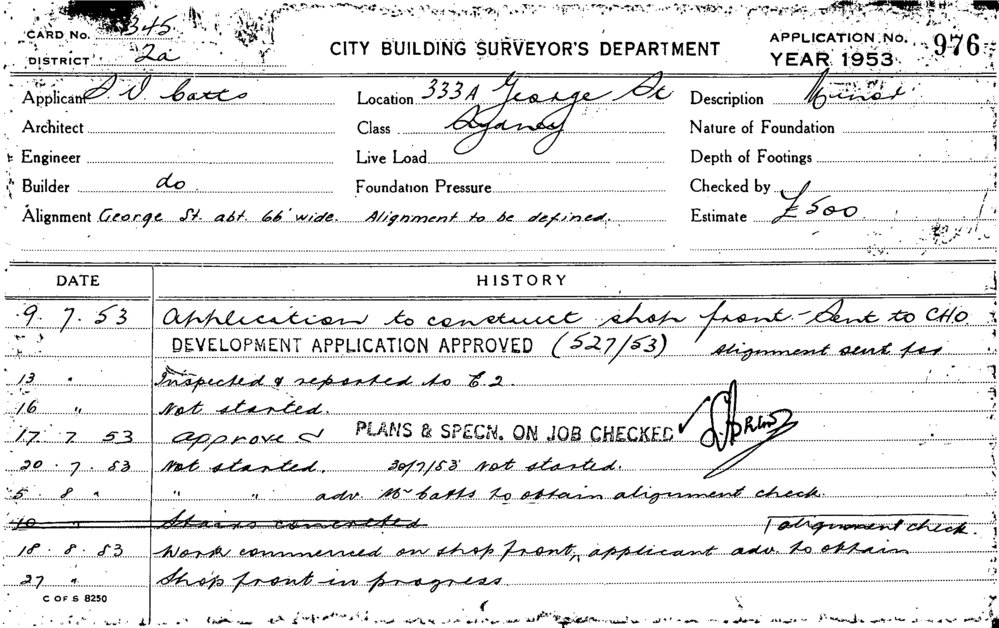 CARD No. 345
DISTRICT 2a
CITY BUILDING SURVEYOR'S DEPARTMENT
APPLICATION No. 976
YEAR 1953
Applicant S. V. Catts Location 333A George St Description Minor
Architect Class Sydney Nature of Foundation
Engineer Live Load Depth of Footings
Builder do Foundation Pressure Checked by
Alignment George St. abt 66' wide. Alignment to be defined. Estimate £500
DATE HISTORY
9. 7. 53 Application to construct shop front - Sent to CHO.
DEVELOPMENT APPLICATION APPROVED (527/53) Alignment sent for
13 " Inspected & reported to E.2.
16 " Not started.
17. 7. 53 Approved PLANS & SPECN. ON JOB CHECKED ✓
20. 7. 53 Not started. 30/7/53 not started.
5. 8 " " " adv. Mr Catts to obtain alignment check.
10 " Stairs concreted
alignment check.
18. 8. 53 Work commenced on shop front, applicant adv. to obtain
27 " Shop front in progress.
C OF S 8250